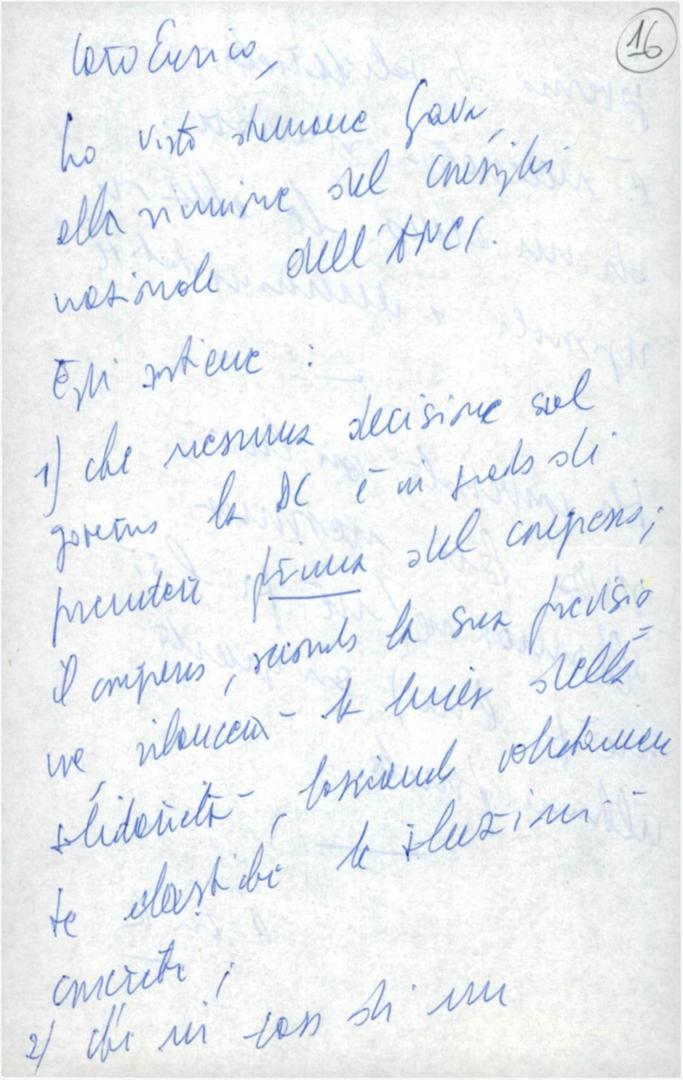 16
Caro Enrico,
ho visto stamane Gava,
alla riunione del Consiglio
nazionale dell'ANCI.
Egli sostiene :
1) che nessuna decisione sul
governo la DC è in grado di
prendere prima del congresso;
il congresso, secondo la sua previsio
ne, rilancerà la linea della
solidarietà, lasciando volutamen
te elastiche le soluzioni
concrete;
2) che in caso di un